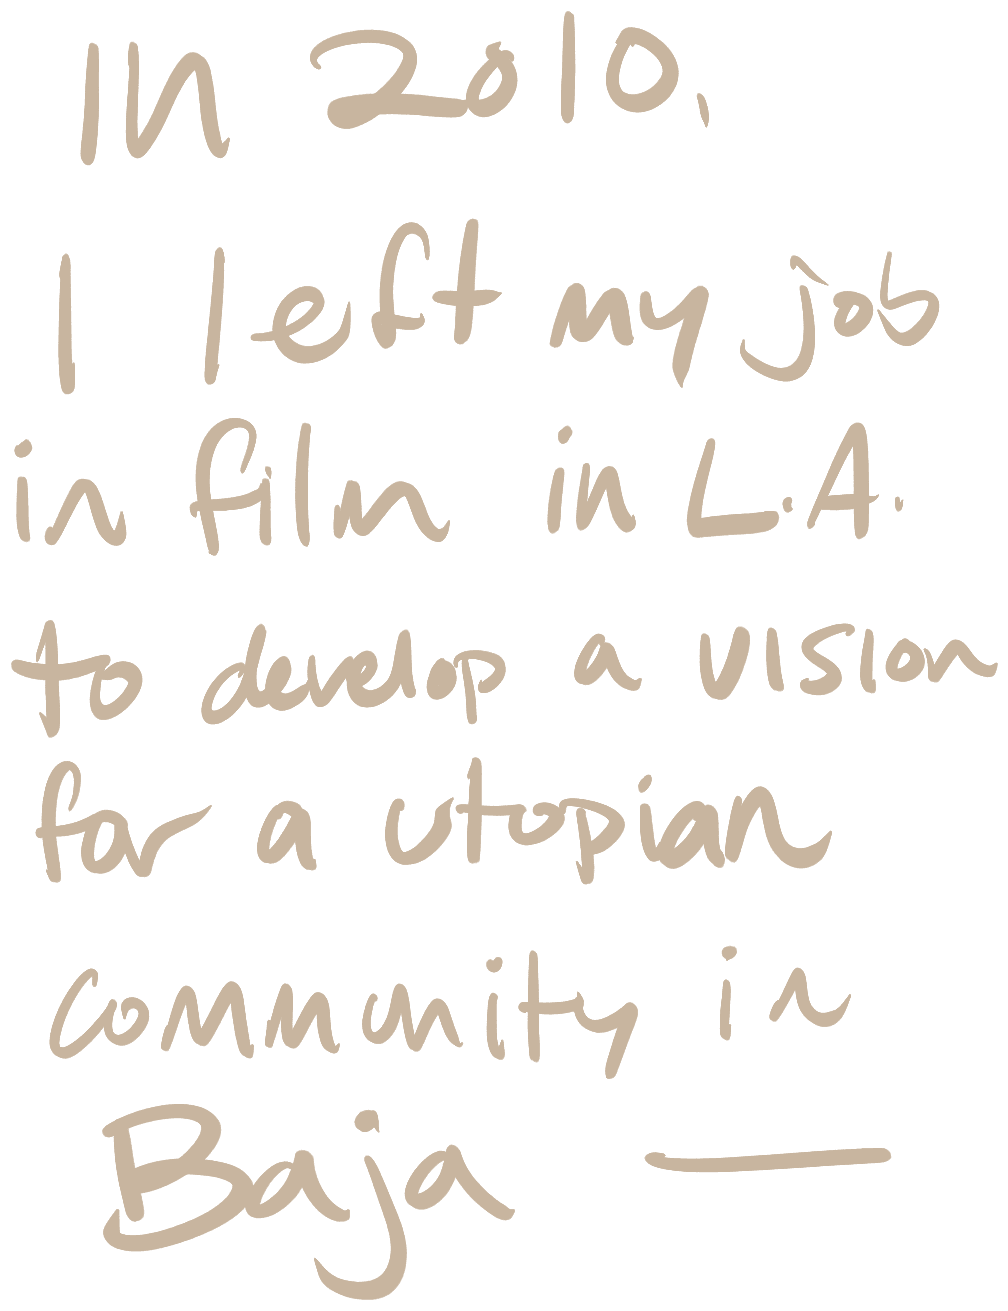 In 2010,
I left my job
in film in L.A.
to develop a vision
for a utopian
community in
Baja —